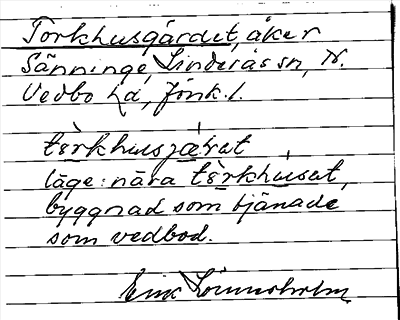 Torkhusgärdet, åker
Sänninge, Linderås sn, N.
Vedbo hd, Jönk. l.
tèrkhusjæ̀ret
läge: nära tèrkhuset,
byggnad som tjänade
som vedbod.
Erik Lönnsholm